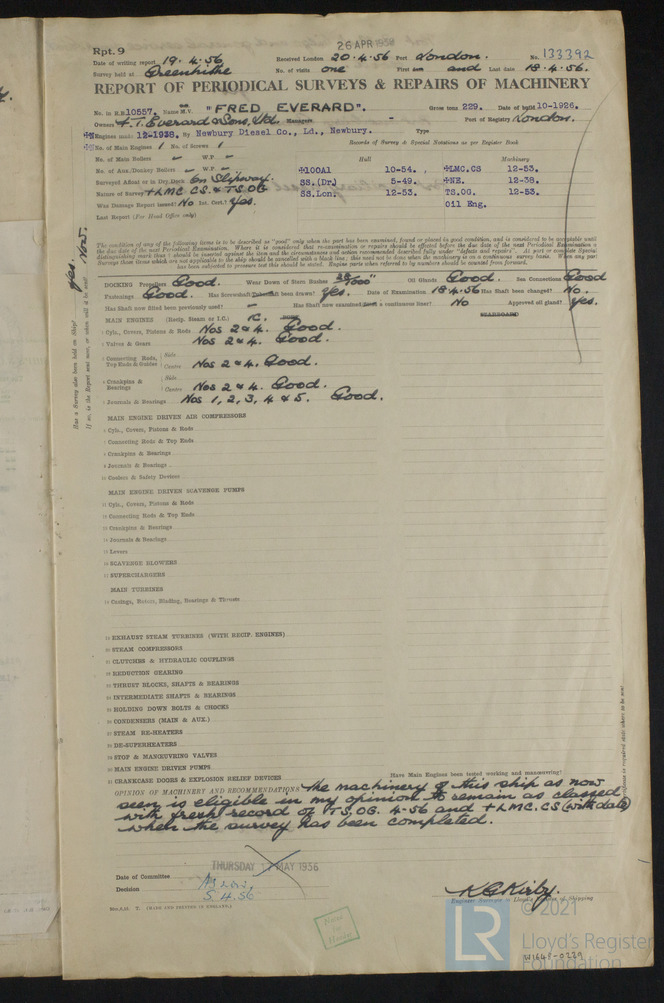 26 APR 1956
Rpt. 9
Date of writing report 19.4.56 Received London 20.4.56 Port London. No. 133392
Survey held at Greenhithe No. of visits one First and Last date 18.4.56.
REPORT OF PERIODICAL SURVEYS & REPAIRS OF MACHINERY
No. in R.B. 10557. Name M.V. "FRED EVERARD". Gross tons 229. Date of built 10-1926.
Owners F.T. Everard & Sons, Ltd. Managers - Port of Registry London.
Engines made 12-1938. By Newbury Diesel Co., Ld., Newbury. Type
No. of Main Engines 1 No. of Screws 1 Records of Survey & Special Notations as per Register Book
No. of Main Boilers - W.P. - Hull Machinery
No. of Aux./Donkey Boilers - W.P. - +100A1 10-54. +LMC.CS 12-53.
Surveyed Afloat or in Dry Dock On Slipway. SS.(Dr) 5-49. +NE. 12-38.
Nature of Survey +LMC.CS. & TS.OG SS.Lon. 12-53. TS.OG. 12-53.
Was Damage Report issued? No Int. Cert.? Yes. Oil Eng.
Last Report (For Head Office only)
Has a Survey also been held on Ship? Yes.
DOCKING Propellers Good. Wear Down of Stern Bushes 28/1000" Oil Glands Good. Sea Connections Good
Fastenings Good. Has Screwshaft been drawn? Yes. Date of Examination 18.4.56 Has Shaft been changed? No.
Has Shaft now fitted been previously used? - Has Shaft now examined a continuous liner? No Approved oil gland? Yes.
MAIN ENGINES (Recip. Steam or I.C.) I.C. STARBOARD
1 Cyls., Covers, Pistons & Rods Nos 2 & 4. Good.
2 Valves & Gears Nos 2 & 4. Good.
3 Connecting Rods, Top Ends & Guides Side
Centre Nos 2 & 4. Good.
4 Crankpins & Bearings Side
Centre Nos 2 & 4. Good.
5 Journals & Bearings Nos 1, 2, 3, 4 & 5. Good.
MAIN ENGINE DRIVEN AIR COMPRESSORS
6 Cyls., Covers, Pistons & Rods
7 Connecting Rods & Top Ends
8 Crankpins & Bearings
9 Journals & Bearings
10 Coolers & Safety Devices
MAIN ENGINE DRIVEN SCAVENGE PUMPS
11 Cyls., Covers, Pistons & Rods
12 Connecting Rods & Top Ends
13 Crankpins & Bearings
14 Journals & Bearings
15 Levers
16 SCAVENGE BLOWERS
17 SUPERCHARGERS
MAIN TURBINES
18 Casings, Rotors, Blading, Bearings & Thrusts
19 EXHAUST STEAM TURBINES (WITH RECIP. ENGINES)
20 STEAM COMPRESSORS
21 CLUTCHES & HYDRAULIC COUPLINGS
22 REDUCTION GEARING
23 THRUST BLOCKS, SHAFTS & BEARINGS
24 INTERMEDIATE SHAFTS & BEARINGS
25 HOLDING DOWN BOLTS & CHOCKS
26 CONDENSERS (MAIN & AUX.)
27 STEAM RE-HEATERS
28 DE-SUPERHEATERS
29 STOP & MANŒUVRING VALVES
30 MAIN ENGINE DRIVEN PUMPS
31 CRANKCASE DOORS & EXPLOSION RELIEF DEVICES Have Main Engines been tested working and manœuvring?
OPINION OF MACHINERY AND RECOMMENDATIONS The machinery of this ship as now
seen is eligible in my opinion to remain as classed
with fresh record of TS.OG. 4-56 and +LMC.CS (with date)
when the survey has been completed.
THURSDAY 17 MAY 1956
Date of Committee
Decision
K G Kirby.
Engineer Surveyor to Lloyd's Register of Shipping
(MADE AND PRINTED IN ENGLAND)
© 2021
LR
Lloyd's Register
Foundation
W1648-0229